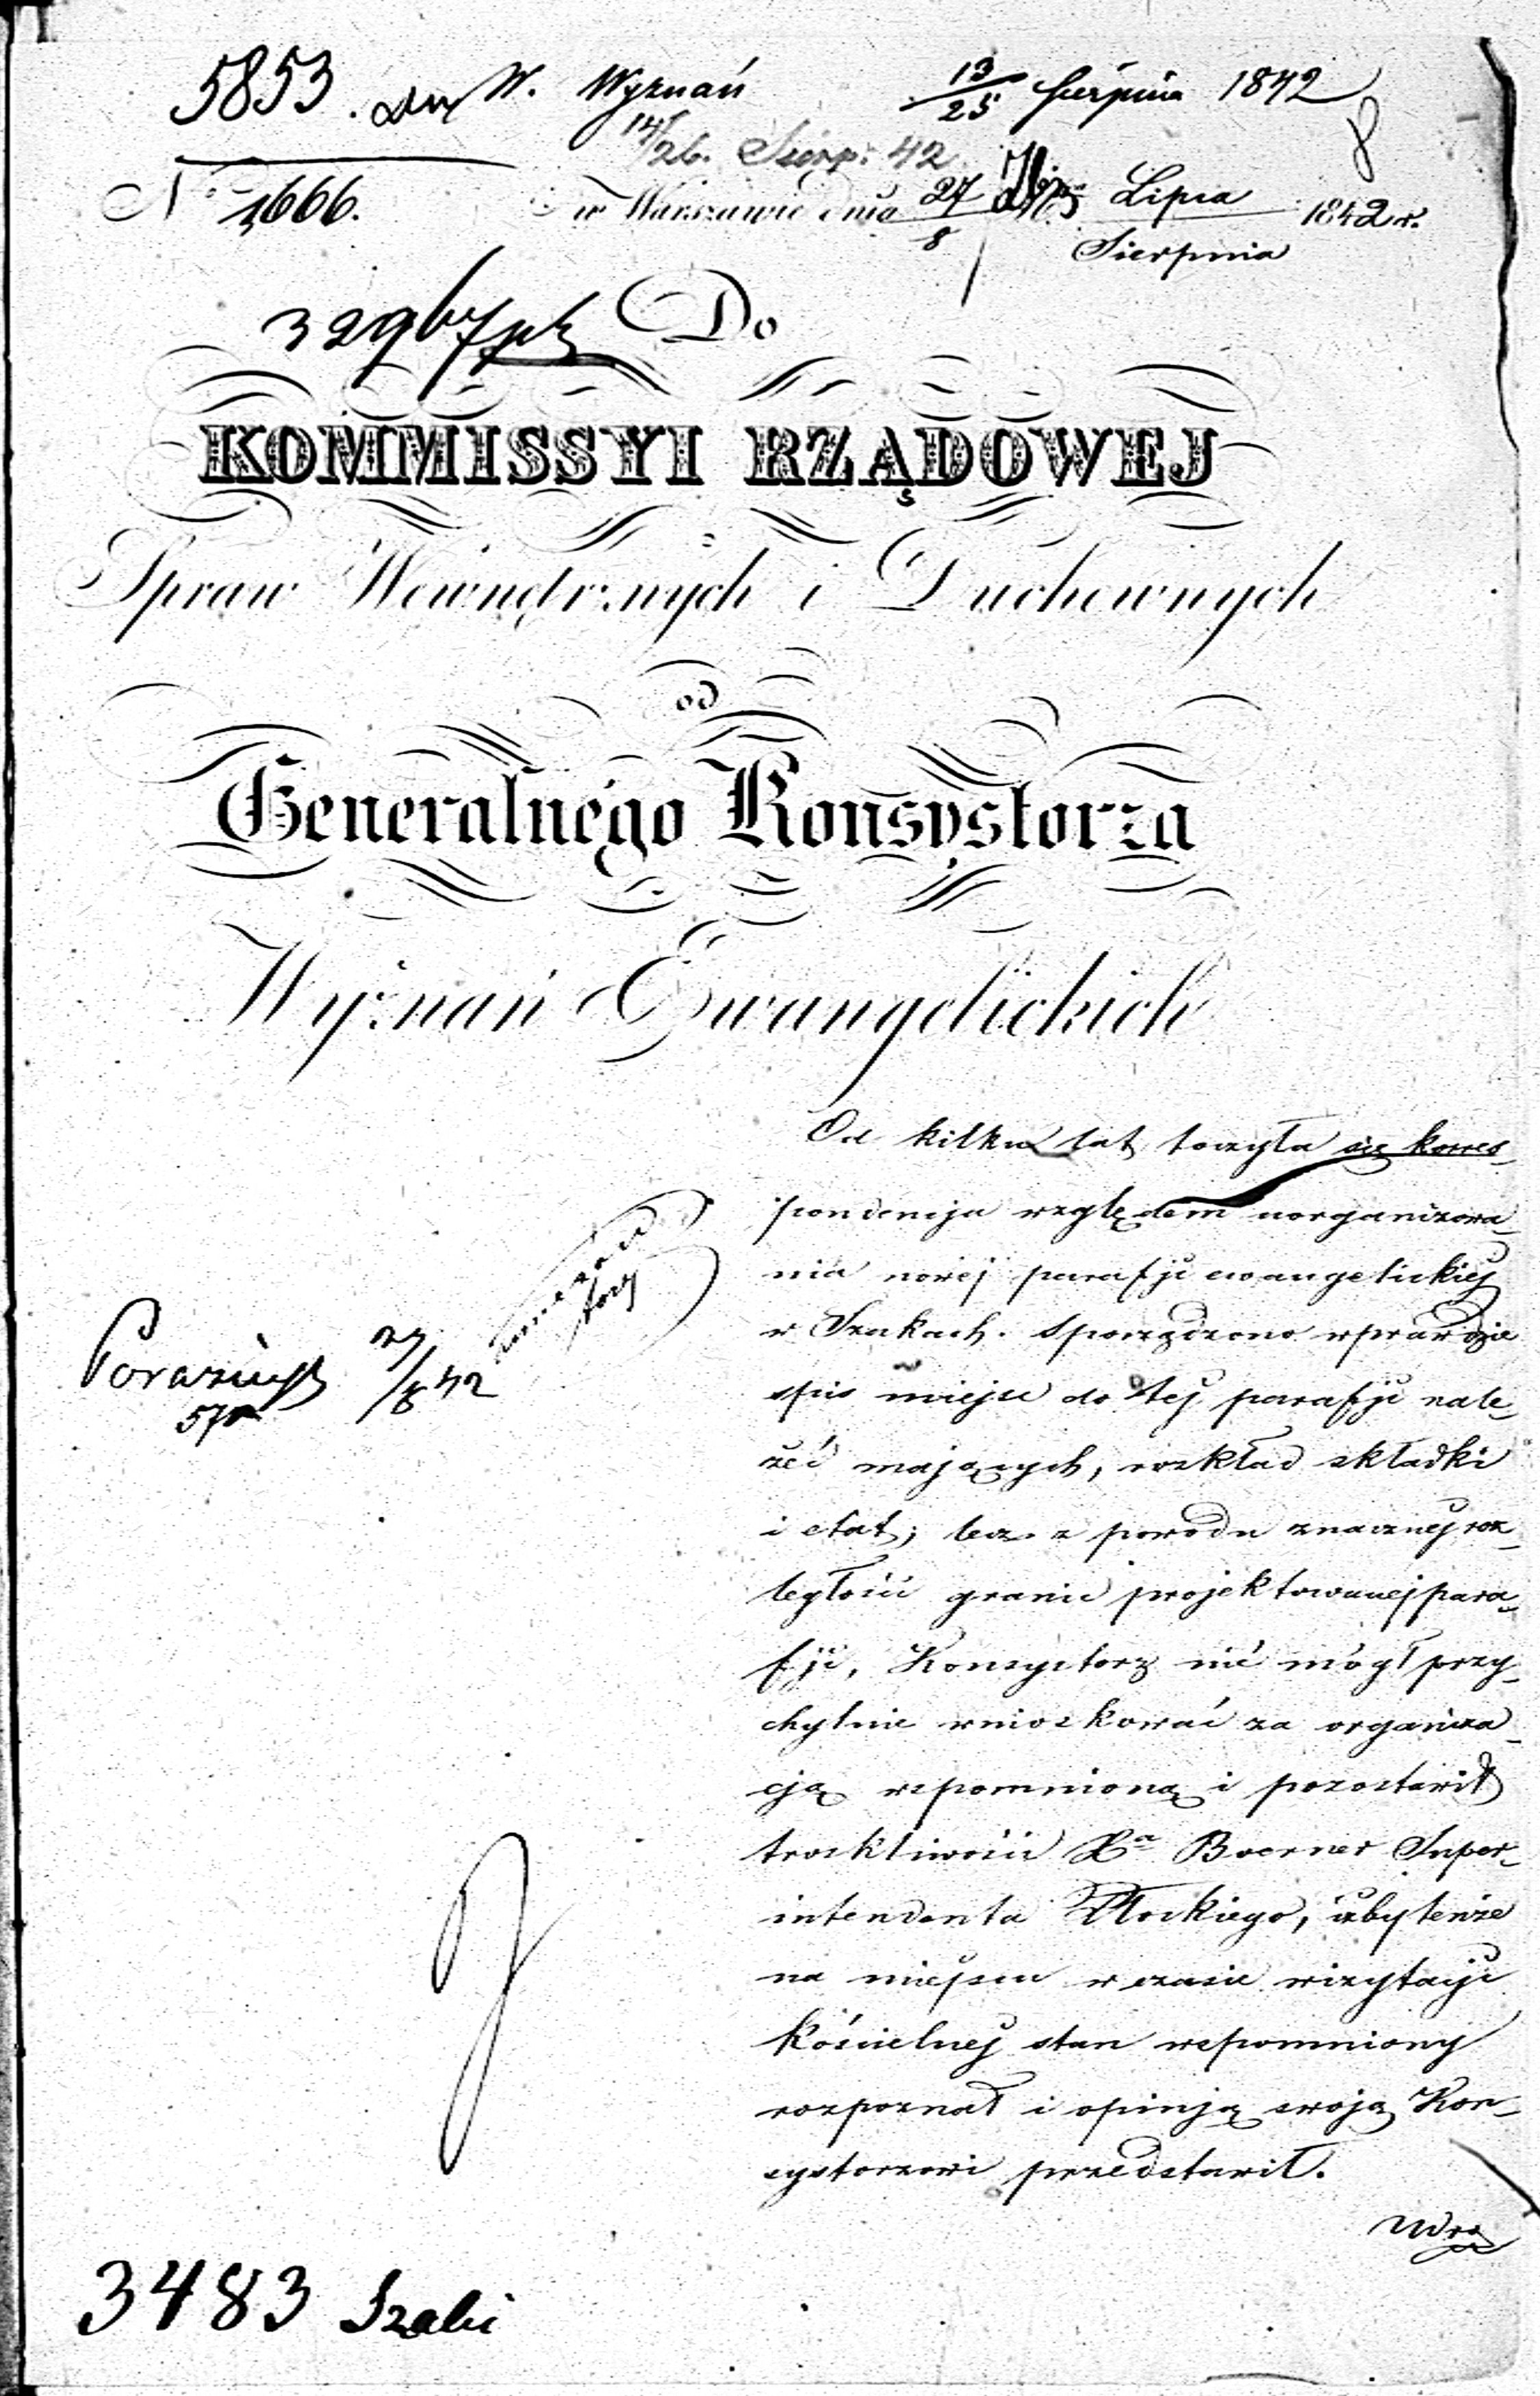 5853. W. Wyznań 13/25 Sierpnia 1842
14/26. Sierp: 42
N 1666. w Warszawie dnia 27/8 Lipca/Sierpnia 1842 r.
Do
KOMMISSYI RZĄDOWEJ
Spraw Wewnętrznych i Duchownych
od
Generalnego Konsystorza
Wyznań Ewangelickich
Od kilku lat toczyła się korres-
pondencija względem uorganizowa-
nia nowej parafji ewangelickiej
w Szakach. Sporządzono wprawdzie
spis miejsc do tej parafji nale-
żéć mających, rozkład składki
i etat; lecz z powodu znacznej roz-
ległości granic projektowanej para-
fji, Konsystorz nié mógł przy-
chylnie wnioskować za organiza-
cją wspomnioną i pozostawił
troskliwości Xa Boerner Super-
intendenta Płockiego, iżby tenże
na miejscu w czasie wizytacji
kościelnej stan wspomniony
rozpoznał i opinją swoją Kon-
systorzowi przedstawił.
27/8 42
3483 Szaki